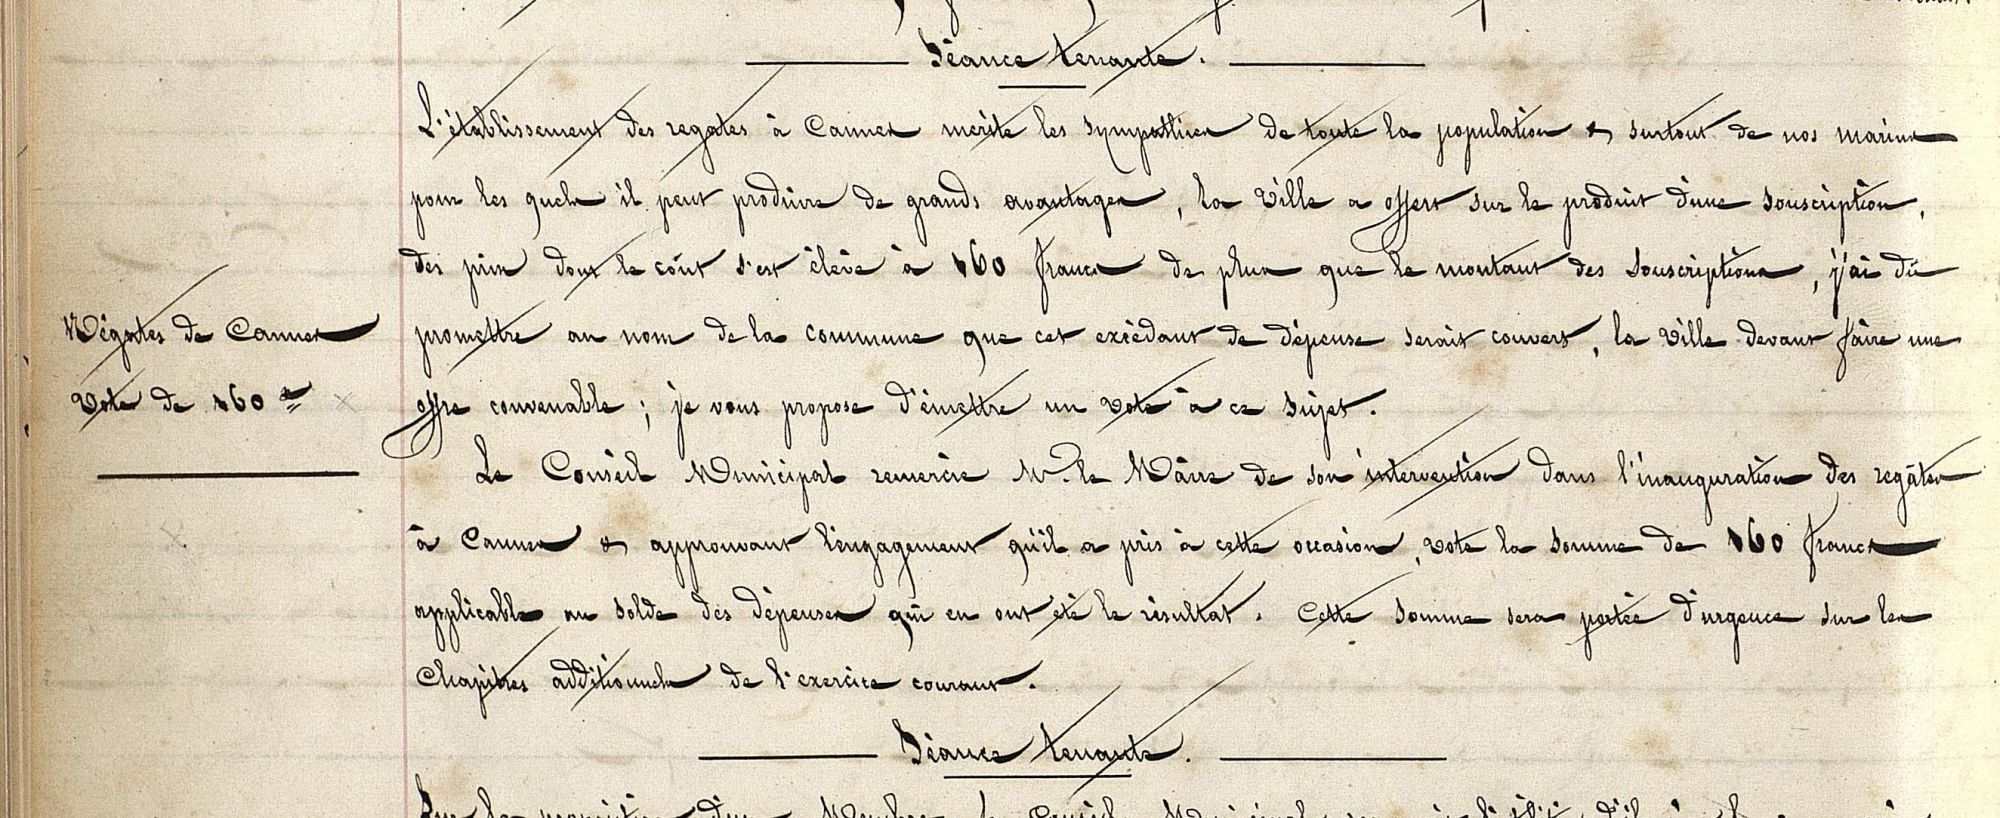 Séance tenante.
L'établissement des regates à Cannes mérite les sympathies de toute la population & surtout de nos marins
pour les quels il peut produire de grands avantages, la Ville a offert sur le produit d'une souscription,
des prix dont le coût s'est élevé à 160 francs de plus que le montant des souscriptions, j'ai dû
Régates de Cannes
promettre au nom de la commune que cet excédant de dépense serait couvert, la Ville devant faire une
Vote de 160 f
offre convenable; je vous propose d'émettre un vote à ce sujet.
Le Conseil Municipal remercie Mr. le Maire de son intervention dans l'inauguration des regates
à Cannes & approuvant l'engagement qu'il a pris à cette occasion, vote la somme de 160 francs
applicable au solde des dépenses qui en ont été le résultat. Cette somme sera portée d'urgence sur les
Chapitres additionnels de l'exercice courant.
Séance tenante.